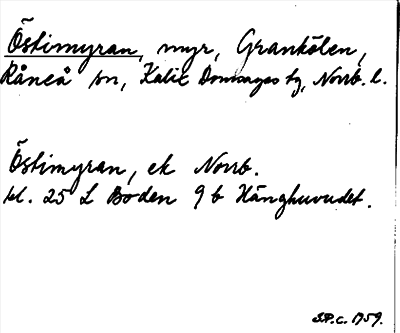 Östimyran, myr, Granhölen,
Råneå sn, Kalix Domsagas tg, Norrb. l.
Östimyran, ek Norrb.
bl. 25 L Boden 9 b Hänghuvudet.
S.P.c. 1959.